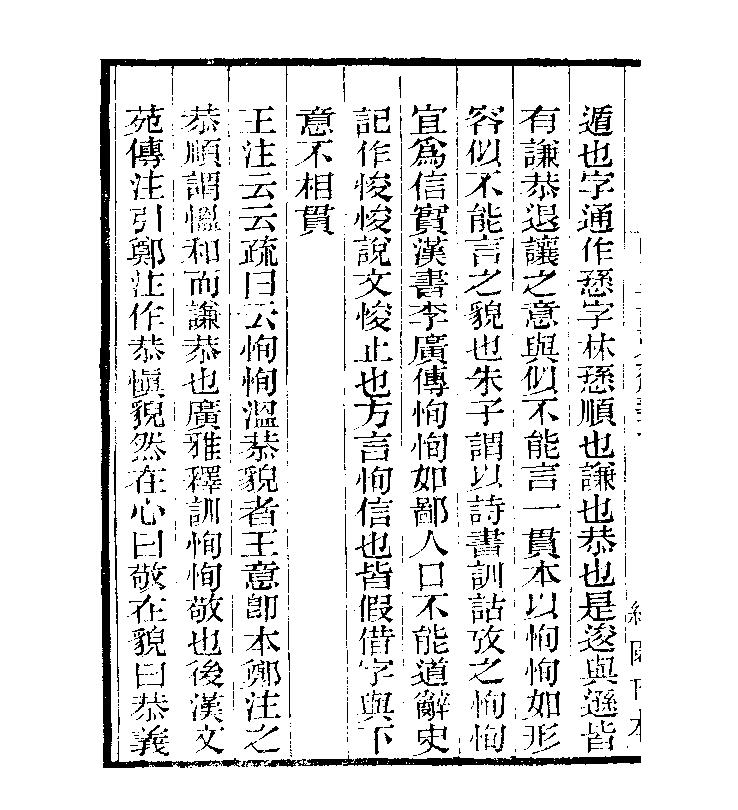 遁也字通作愻字林愻順也謙也恭也是逡與遜皆
有謙恭退讓之意與似不能言一貫本以恂恂如形
容似不能言之貌也朱子謂以詩書訓詁攷之恂恂
宜爲信實漢書李廣傳恂恂如鄙人口不能道辭史
記作悛悛說文悛止也方言恂信也皆假借字與下
意不相貫
王注云云疏曰云恂恂溫恭貌者王意卽本鄭注之
恭順謂慍和而謙恭也廣雅釋訓恂恂敬也後漢文
苑傳注引鄭注作恭慎貌然在心曰敬在貌曰恭義